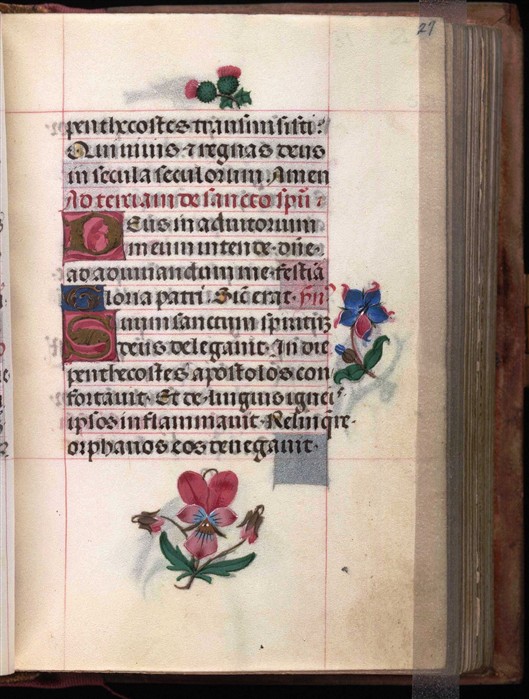 27
penthecostes transmisisti:
Qui vivis ⁊ regnas deus
in secula seculorum. Amen
Ad terciam de sancto spū:
Deus in adiutorium
meum intende. dn̄e.
ad adiuuandum me festiā
Gloria patri. Sic̄ erat. ym̄
Suum sanctum spiritū
deus delegauit. In die
penthecostes apostolos con
fortauit. Et de linguis ignei
ipsos inflammauit. Relinq̄re.
orphanos eos denegauit.